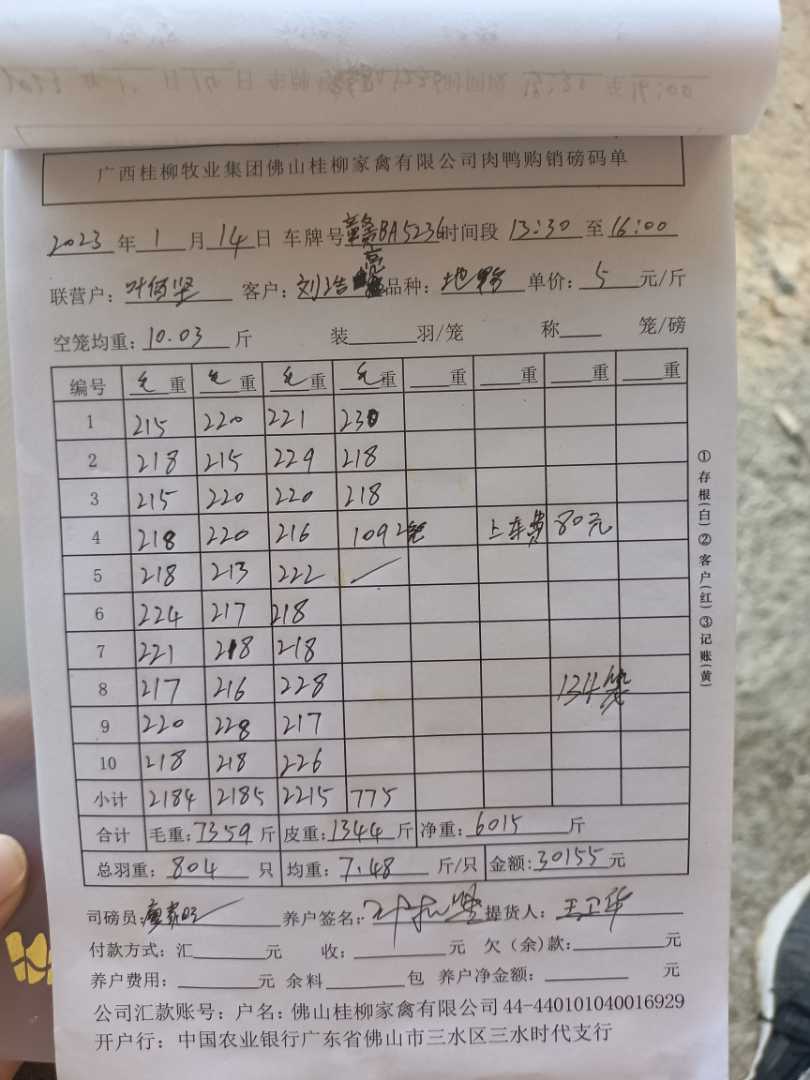 广西桂柳牧业集团佛山桂柳家禽有限公司肉鸭购销磅码单
2023 年 1 月 14 日 车牌号 赣BA5236 时间段 13:30 至 16:00
联营户: 叶何坚 客户: 刘浩亮 品种: 单价: 5 元/斤
空笼均重: 10.03 斤 装 羽/笼 称 笼/磅
编号 毛重 毛重 毛重 毛重 重 重 重 重
1 215 220 221 230
2 218 215 229 218
3 215 220 220 218
4 218 220 216 109 2笼 上车费 80元
5 218 213 222
6 224 217 218
7 221 218 218
8 217 216 228 134笼
9 220 228 217
10 218 218 226
小计 2184 2185 2215 775
合计 毛重: 7359 斤 皮重: 1344 斤 净重: 6015 斤
总羽重: 804 只 均重: 7.48 斤/只 金额: 30155 元
司磅员: 养户签名: 提货人: 王卫华
付款方式: 汇 元 收: 元 欠(余)款: 元
养户费用: 元 余料 包 养户净金额: 元
公司汇款账号: 户名: 佛山桂柳家禽有限公司 44-440101040016929
开户行: 中国农业银行广东省佛山市三水区三水时代支行
①存根(白)②客户(红)③记账(黄)